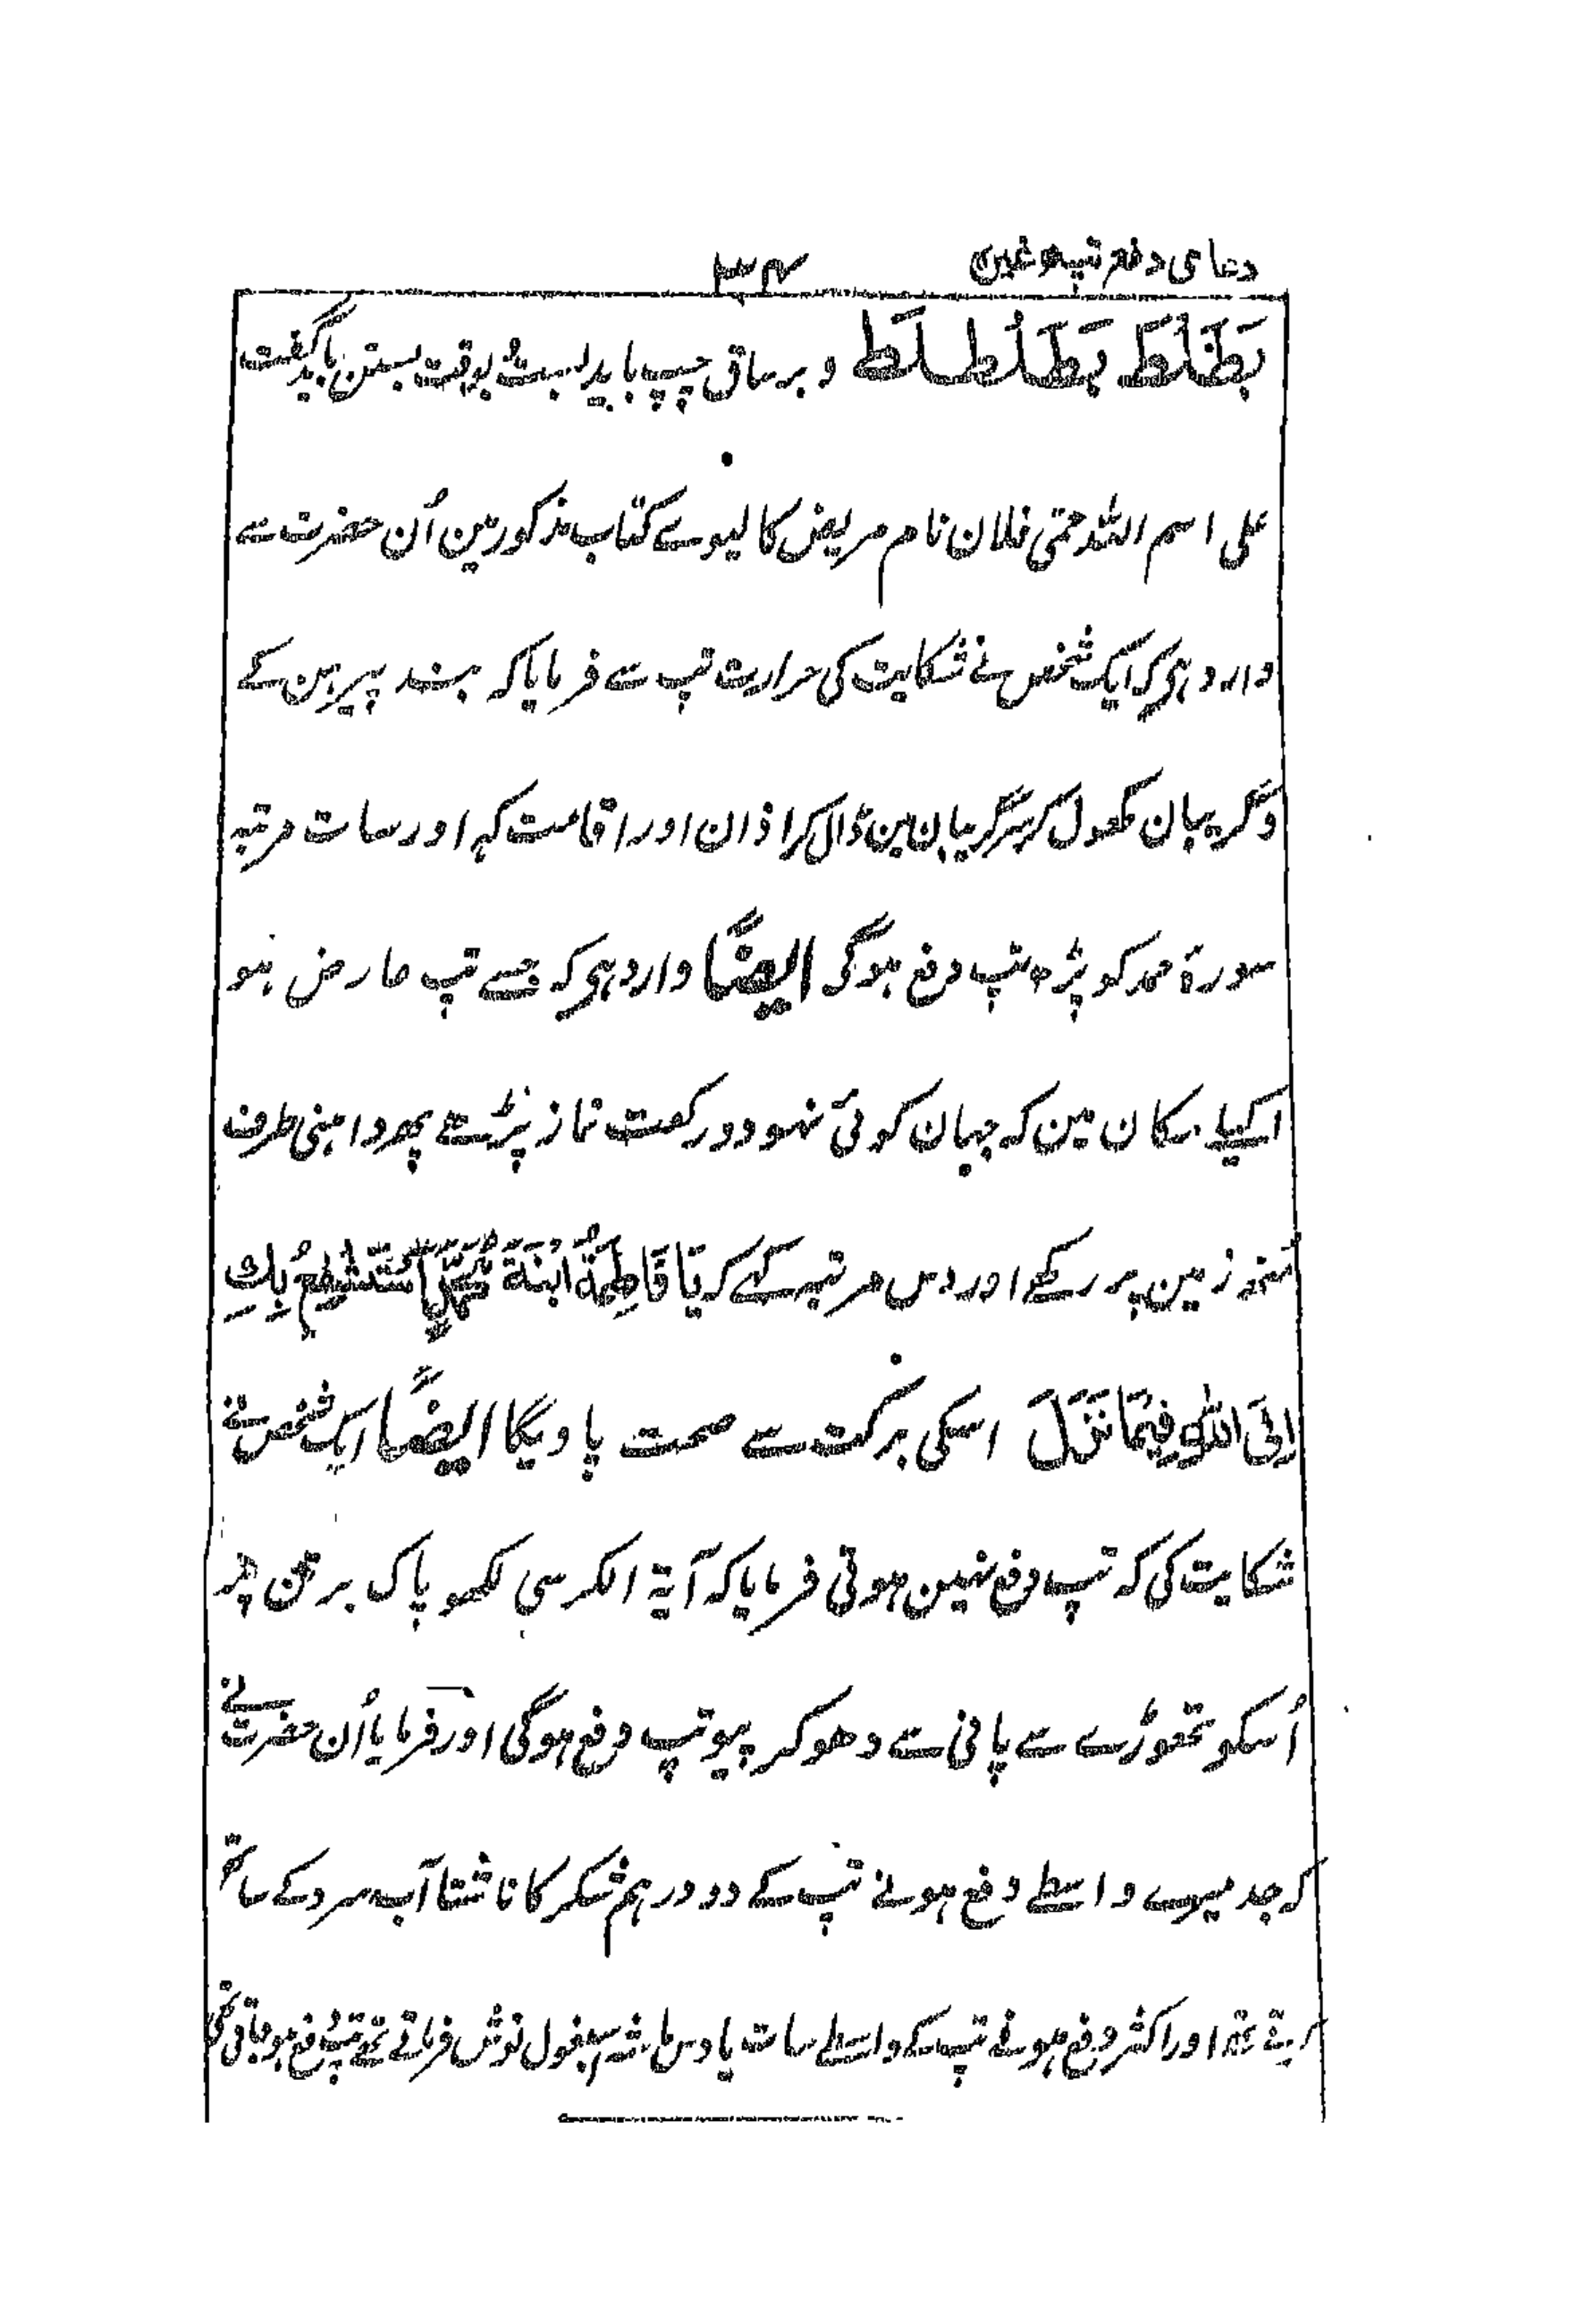 دعای دفع تپ وغیره ۳۴
بَطَلَطَ بَطَلُطْ لَط و بر ساق چپ باید بست و بوقت بستن باید گفت
علی اسم اللہ حمتی فلان نام مریض کا لیوے کتاب مذکور مین اُن حضرت سے
وارد ہی کہ ایک شخص نے شکایت کی حرارت تپ سے فرمایا کہ بند پیرہن کے
و گریبان کھول کر سر گریبان مین ڈال کر اذان اور اقامت کہہ اور سات مرتبہ
سورۂ حمد کو پڑھ تپ دفع ہوگی ایضًا وارد ہی کہ جسے تپ عارض ہو
اکیلے مکان مین کہ جہان کوئی نہو دو رکعت نماز پڑھے پھر داہنی طرف
منھ زمین پر رکھے اور دس مرتبہ کہے کہ یَا فَاطِمَۃُ ابْنَۃَ مُحَمَّدٍ اَسْتَشْفِعُ بِكِ
اِلَی اللّٰهِ فِیْمَا نَزَلَ اسکی برکت سے صحت پاویگا ایضًا ایک شخص نے
شکایت کی کہ تپ دفع نہین ہوتی فرمایا کہ آیۃ الکرسی لکھو پاک برتن پر
اُسکو تھوڑے سے پانی سے دھو کر پیو تپ دفع ہوگی اور فرمایا اُن حضرت نے
کہ جد میرے واسطے دفع ہونے تپ کے دو درہم شکر کا ناشتا آب سرد کے ساتھ
کرتے تھے اور اکثر دفع ہونے تپ کے واسطے سات یا دس ماشہ اسبغول نوش فرماتے تھے تپ دفع ہو جاتی تھی